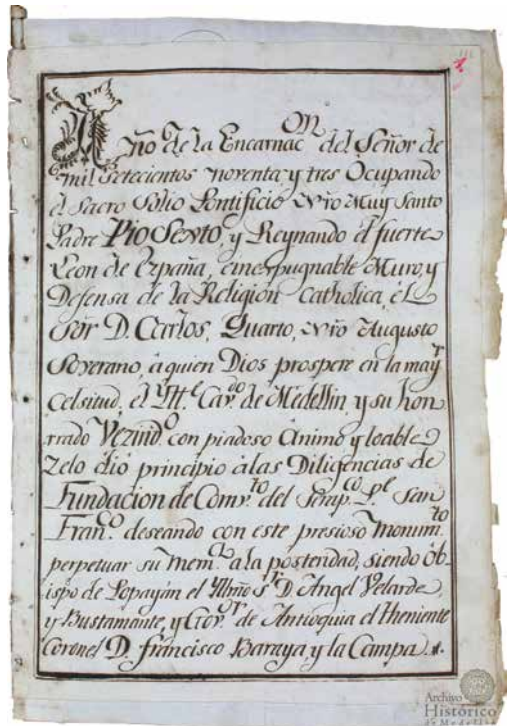 Año de la Encarnac.on del Señor de
mil setecientos noventa, y tres Ocupando
el Sacro Solio Pontificio Nro Muy Santo
Padre Pio Sexto, y Reynando el fuerte
Leon de España, é inexpugnable Muro, y
Defensa de la Religion Catholica, el
Señr D. Carlos, Quarto, Nro Augusto
Soverano, á quien Dios prospere en la may.r
Celsitud, el Itt.e Cav.do de Medellin, y su hon
rrado Vezind.o con piadoso Animo y loable
Zelo dió principio á las Diligencias de
Fundacion de Comv.to del Serap.co P.e San
Fran.co deseando con este presioso Monum.to
perpetuar su mem.a a la posteridad, siendo Ob-
ispo de Popayán el Yllmo S.r D. Angel Velarde,
y Bustamante, y Gov.or de Antioquia el Theniente
Coronel D. Francisco Baraya, y la Campa
Archivo
Histórico
de Medellín